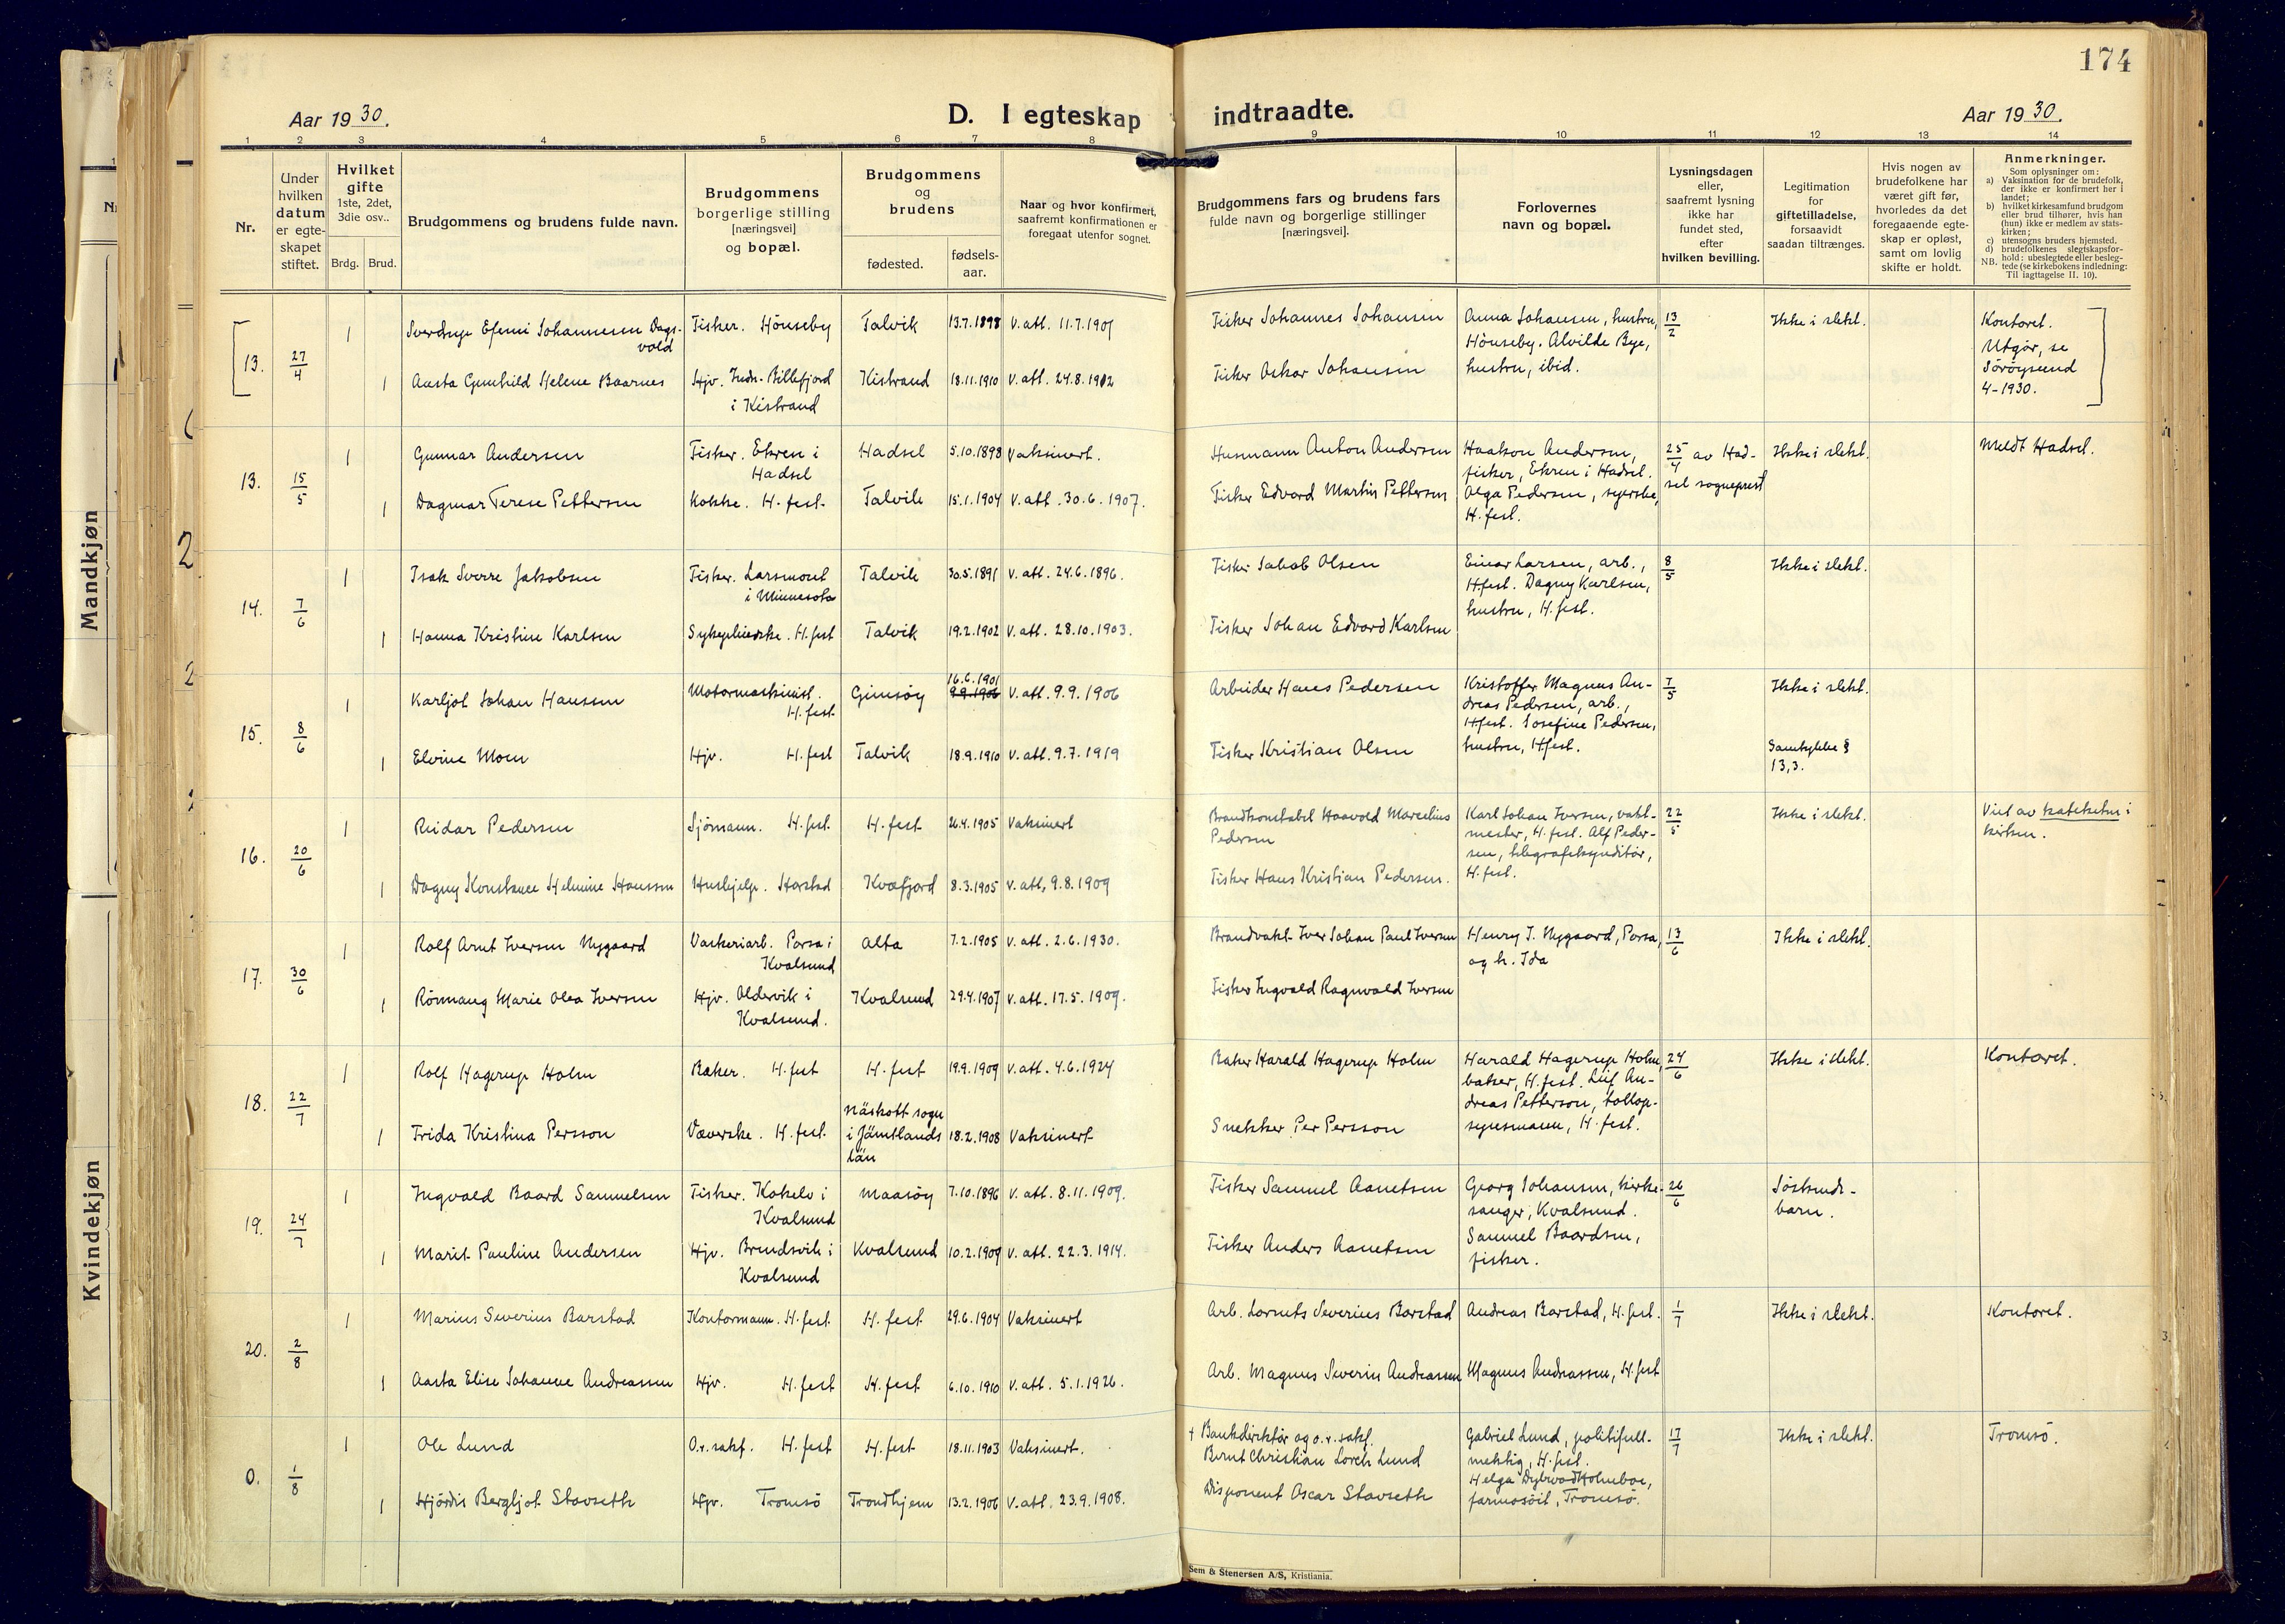 174
Aar 1930.
D. I egteskap indtraadte.
Aar 1930.
1 2 3 4 5 6 7 8 9 10 11 12 13 14
Nr.
Under
hvilken
datum
er egte-
skapet
stiftet.
Hvilket
gifte
1ste, 2det,
3die osv..
Brdg. Brud.
Brudgommens og brudens fulde navn.
Brudgommens
borgerlige stilling
[næringsvei]
og bopæl.
Brudgommens
og
brudens
fødested.
fødsels-
aar.
Naar og hvor konfirmert,
saafremt konfirmationen er
foregaat utenfor sognet.
Brudgommens fars og brudens fars
fulde navn og borgerlige stillinger
[næringsvei].
Forlovernes
navn og bopæl.
Lysningsdagen
eller,
saafremt lysning
ikke har
fundet sted,
efter
hvilken bevilling.
Legitimation
for
giftetilladelse,
forsaavidt
saadan tiltrænges.
Hvis nogen av
brudefolkene har
været gift før,
hvorledes da det
foregaaende egte-
skap er opløst,
samt om lovlig
skifte er holdt.
Anmerkninger.
Som oplysning om:
a) Vaksination for de brudefolk,
der ikke er konfirmert her i
landet;
b) hvilket kirkesamfund brudgom
eller brud tilhører, hvis han
(hun) ikke er medlem av stats-
kirken;
c) utensogns bruders hjemsted.
d) brudefolkenes slegtskapsfor-
hold: ubeslegtede eller besleg-
NB. tede (se kirkebokens indledning:
Til iagttagelse II. 10).
Mandkjøn
Kvindekjøn
13. 27/4
1 Sverdrup Efemi Johannesen Dags-
vold
Fisker. Hönseby
Talvik 13.7.1898 V. att. 11.7.1901
Fisker Johannes Johansen
Anna Johansen, hustru,
Hönseby. Alvilde Bye,
hustru, ibid.
13/2
Ikke i slekt.
Kontoret.
Utgår, se
Sörøysund
4-1930.
1 Aasta Gunhild Helene Baarnes
Hjv. Indr. Billefjord
i Kistrand
Kistrand 18.11.1910 V. att. 24.8.1912
Fisker Oskar Johansen
13. 15/5
1 Gunnar Andersen
Fisker. Ekren i
Hadsel
Hadsel 5.10.1898 Vaksinert.
Husmann Anton Andersen
Haakon Andersen,
fisker, Ekren i Hadsel.
Olga Pedersen, syerske,
H. fest.
25/4 av Had-
sel sogneprest
Ikke i slekt.
Meldt Hadsel.
1 Dagmar Terese Pettersen
Kokke. H. fest.
Talvik 15.1.1904 V. att. 30.6.1907.
Fisker Edvard Martin Pettersen
14. 7/6
1 Isak Sverre Jakobsen
Fisker. Larsmont
i Minnesota
Talvik 30.5.1891 V. att. 24.6.1896.
Fisker Jakob Olsen
Einar Larsen, arb.,
H.fest. Dagny Karlsen,
hustru, H. fest.
8/5
Ikke i slekt.
1 Hanna Kristine Karlsen
Sykepleierske. H. fest
Talvik 19.2.1902 V. att. 28.10.1903.
Fisker Johan Edvard Karlsen
15. 8/6
1 Karljot Johan Hanssen
Motormaskinist.
H. fest
Gimsöy 16.6.1901
9.9.1906 V. att. 9.9.1906
Arbeider Hans Pedersen
Kristoffer Magnus An-
dreas Pedersen, arb.,
H.fest. Josefine Pedersen,
hustru, H.fest.
7/5
Ikke i slekt.
1 Elvine Moen
Hjv. H. fest
Talvik 18.9.1910 V. att. 9.7.1919
Fisker Kristian Olsen
Samtykke §
13,3.
16. 20/6
1 Reidar Pedersen
Sjömann. H. fest.
H. fest 26.4.1905 Vaksinert
Brandkonstabel Haavold Marcelius
Pedersen
Karl Johan Iversen, vakt-
mester, H. fest. Alf Peder-
sen, telegrafekspeditör,
H. fest.
22/5
Ikke i slekt.
Viet av kateketen i
kirken.
1 Dagny Konstance Helmine Hanssen
Hushjelp. Harstad
Kvæfjord 8.3.1905 V. att. 9.8.1909
Fisker Hans Kristian Pedersen.
17. 30/6
1 Rolf Arnt Iversen Nygaard
Vaskeriarb. Porsa i
Kvalsund
Alta 7.2.1905 V. att. 2.6.1930.
Brandvakt Iver Johan Paul Iversen
Henry J. Nygaard, Porsa,
og h. Ida
13/6
Ikke i slekt.
1 Rönnaug Marie Olea Iversen
Hjv. Oldervik i
Kvalsund.
Kvalsund 29.4.1907 V. att. 17.5.1909.
Fisker Ingvald Ragnvald Iversen
18. 22/7
1 Rolf Hagerup Holm
Baker. H. fest
H. fest 19.9.1909 V. att. 4.6.1924
Baker Harald Hagerup Holm
Harald Hagerup Holm,
baker, H. fest. Leif An-
dreas Petterson, tollop-
synsmann, H. fest.
24/6
Ikke i slekt.
Kontoret.
1 Frida Kristina Persson
Væverske. H. fest.
Näskott sogn
i Jämtlands
Län
18.2.1908 Vaksinert
Snekker Per Persson
19. 24/7
1 Ingvald Baard Samuelsen
Fisker. Kokelv i
Kvalsund
Maasöy 7.10.1896 V. att. 8.11.1909.
Fisker Samuel Aanetsen
Georg Johansen, kirke-
sanger, Kvalsund.
Samuel Baardsen,
fisker.
26/6
Söskende-
barn.
1 Marit Pauline Andersen
Hjv. Brendsvik i
Kvalsund
Kvalsund 10.2.1909 V. att. 22.3.1914.
Fisker Anders Aanetsen
20. 2/8
1 Marius Severius Barstad
Kontormann. H. fest.
H. fest 29.6.1904 Vaksinert
Arb. Lornts Severius Barstad
Andreas Barstad, H. fest.
1/7
Ikke i slekt.
Kontoret.
1 Aasta Elise Johanne Andreassen
Hjv. H. fest
H. fest 6.10.1910 V. att. 5.1.1926.
Arb. Magnus Severin Andreassen
Magnus Andreassen, H. fest
0. 1/8
1 Ole Lund
O.r.sakf. H. fest
H. fest 18.11.1903 Vaksinert.
+ Bankdirektör og o.r.sakf.
Bernt Christian Lorch Lund
Gabriel Lund, politifull-
mektig, H. fest.
Helga Dybwad Holmboe,
farmasöit, Tromsö.
17/7
Ikke i slekt.
Tromsö.
1 Hjördis Bergljot Stavseth
Hjv. Tromsö
Trondhjem 13.2.1906 V. att. 23.9.1908.
Disponent Oscar Stavseth
Sem & Stenersen A/S, Kristiania.